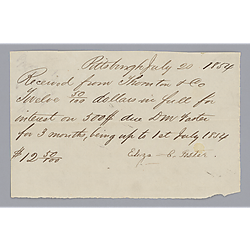 Pittsburgh July 20 1854
Received from Thornton & Co
Twelve 50/100 dollars in full for
interest on 500 due Dm Foster
for 3 months, being up to 1st July 1854
$12 50/100 Eliza C. Foster